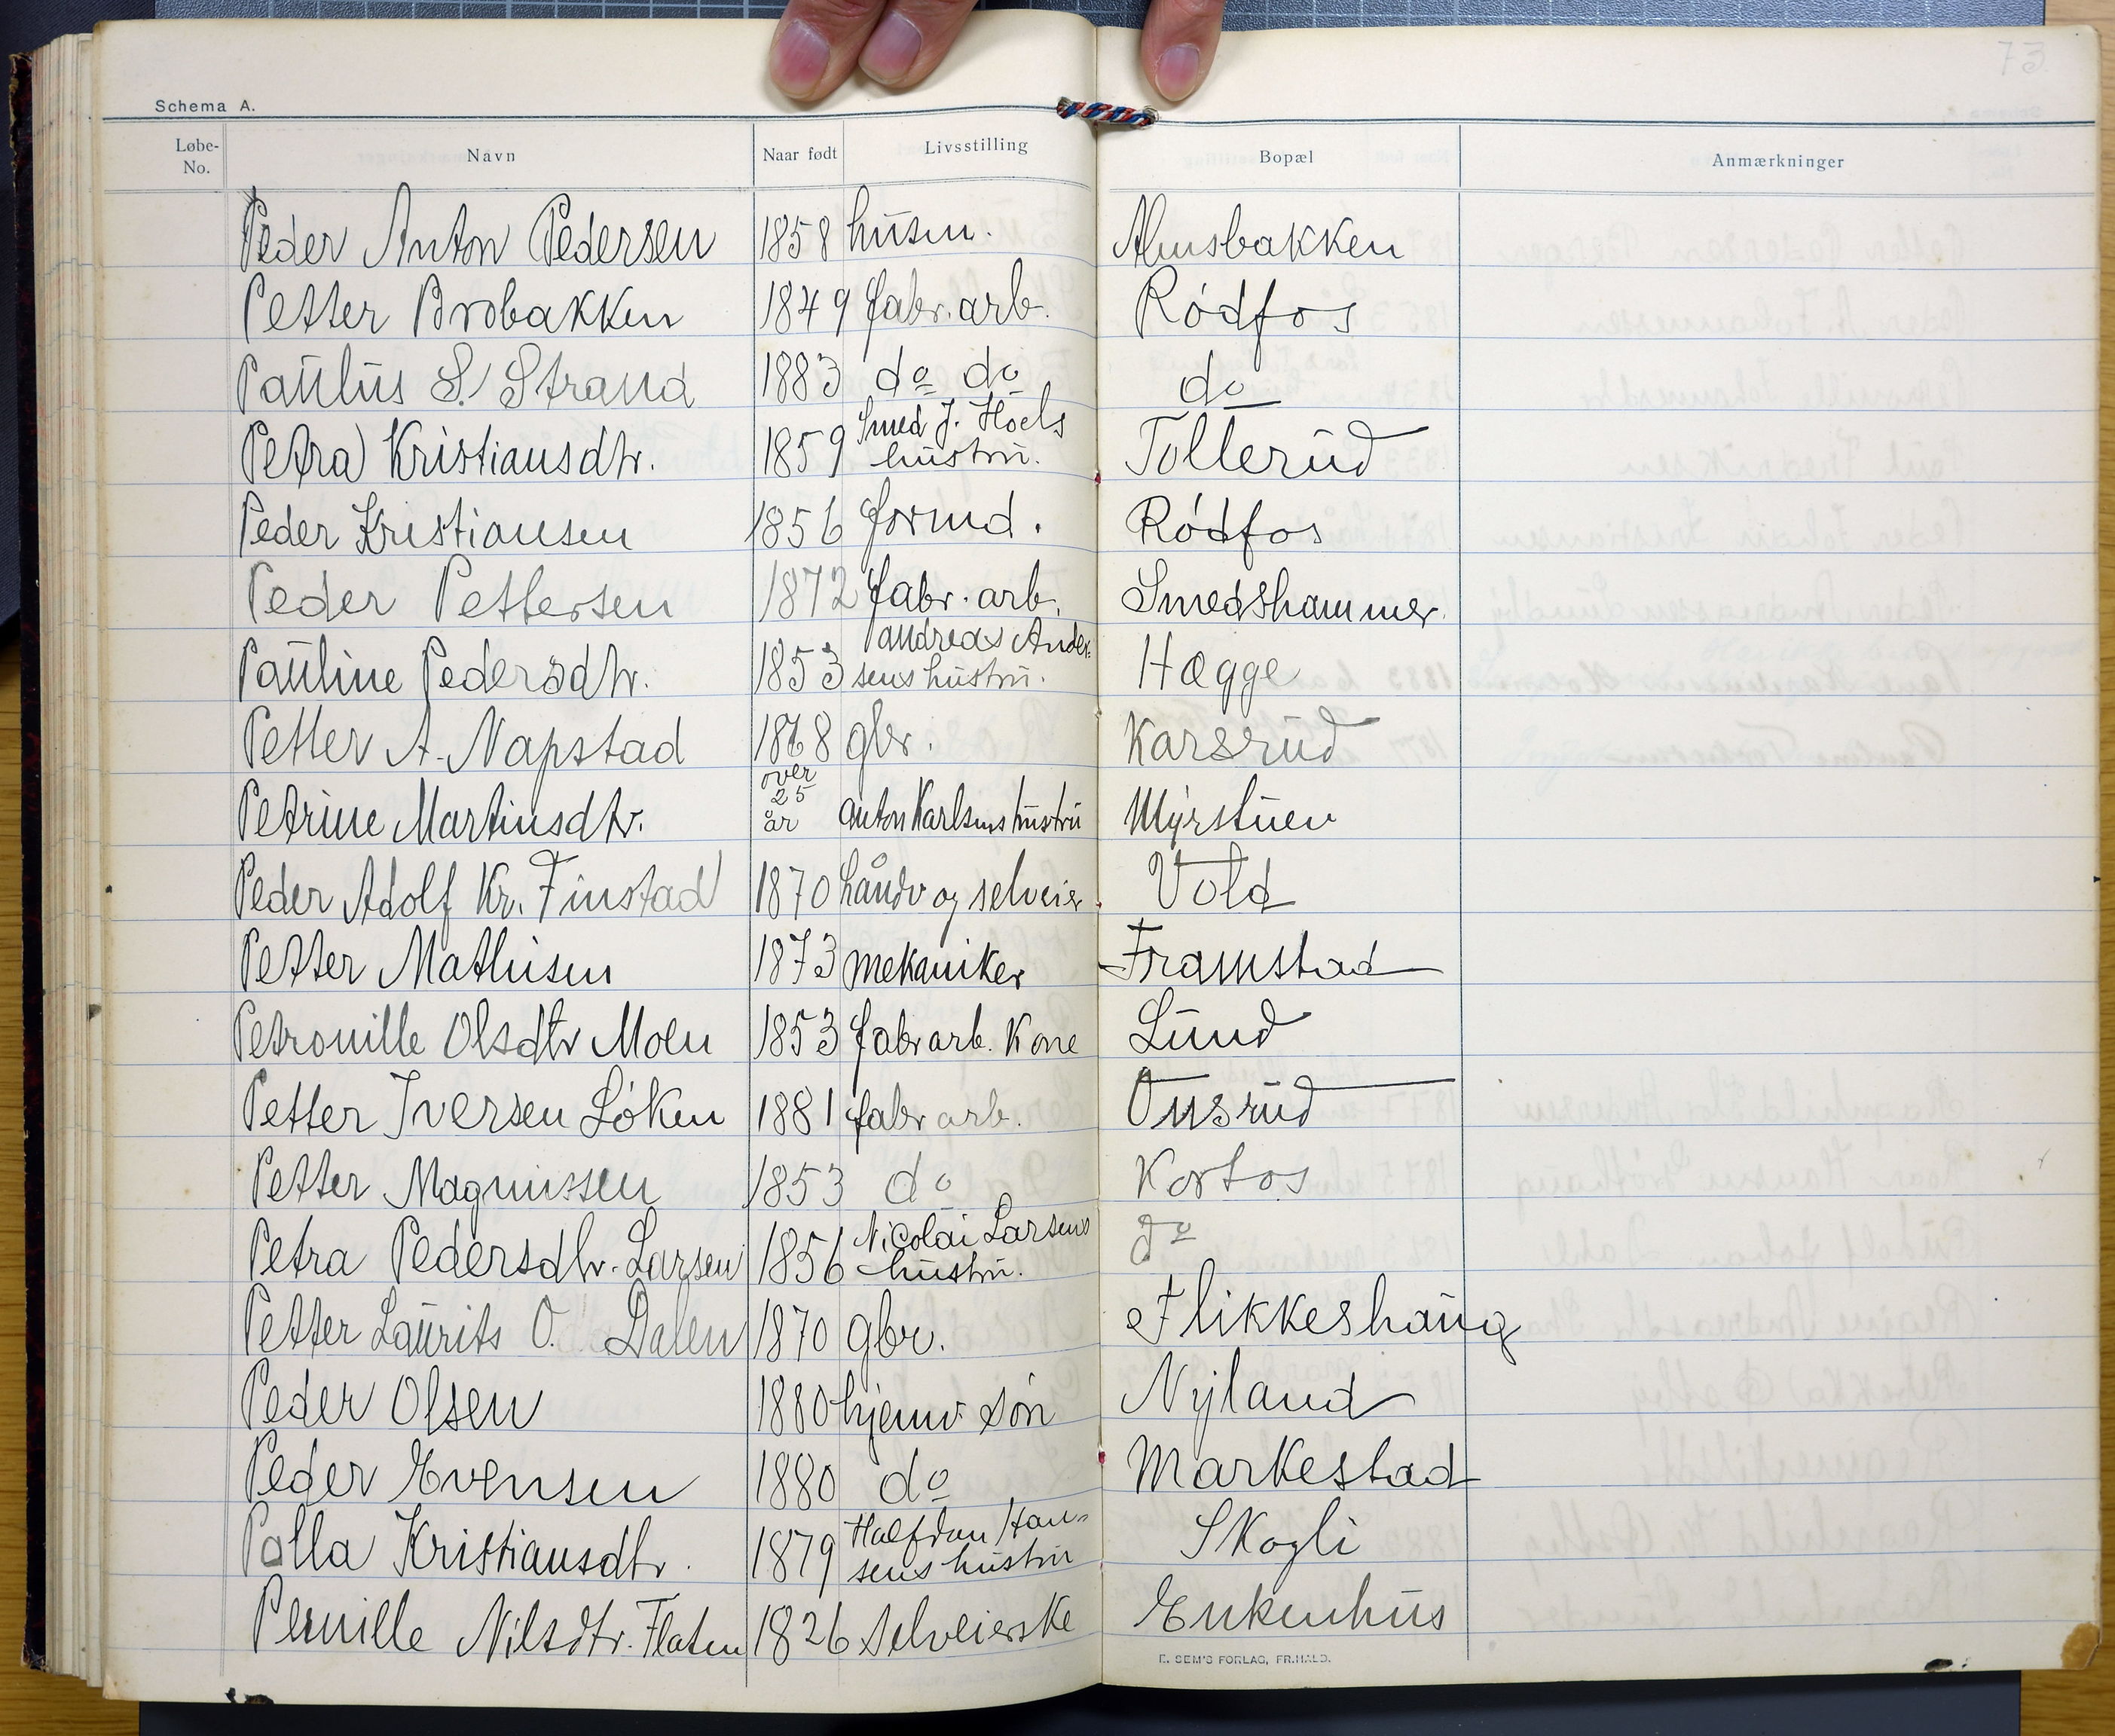 73
Schema A.
Løbe-No. Navn Naar født Livsstilling Bopæl Anmærkninger
Peder Anton Pedersen 1858 husm. Almsbakken
Petter Brobakken 1849 fabr. arb. Rødfos
Paulus S. Strand 1883 do do do
Petra Kristiansdtr. 1859 Smed J. Hoels hustru. Tollerud
Peder Kristiansen 1856 formd. Rødfos
Peder Pettersen 1872 fabr. arb. Smedshammer.
Pauline Pedersdtr. 1853 Andreas Andersens hustru. Hægge
Petter A. Napstad 1868 gbr. Karsrud
Petrine Martinsdtr. over 25 år Anton Karlsens hustru Myrstuen
Peder Adolf Kr. Finstad 1870 håndv og selveier Vold
Petter Mathisen 1873 mekaniker Framstad
Petronille Olsdtr Moen 1853 fabr arb. Kone Lund
Petter Iversen Løken 1881 fabr arb. Onsrud
Petter Magnussen 1853 do Kortos
Petra Pedersdtr. Larsen 1856 Nicolai Larsens hustru. do
Petter Laurits O. Dalen 1870 gbr. Flikkeshaug
Peder Olsen 1880 hjemv. søn Nyland
Peder Evensen 1880 do Markestad
Palla Kristiansdtr. 1879 Halfdan Hansens hustru Skogli
Pernille Nilsdtr. Flaten 1826 selveierske Enkenhus
E. SEM'S FORLAG, FR.HALD.